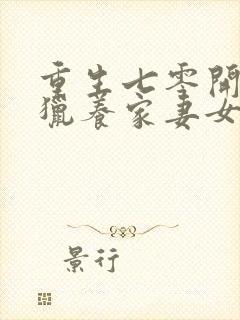 重生七零開
獵養家妻女
景行